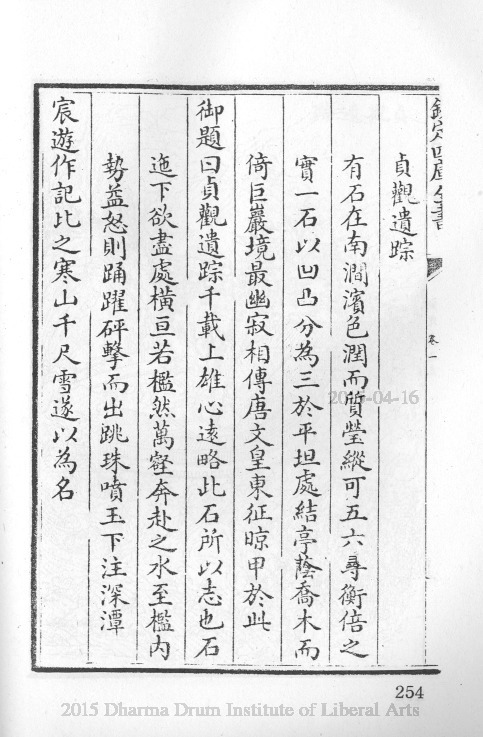 欽定四庫全書
卷一
貞觀遺踪
有石在南澗濱色潤而質瑩縱可五六尋衡倍之
實一石以凹凸分為三於平坦處結亭蔭喬木而
倚巨巖境最幽寂相傳唐文皇東征晾甲於此
御題曰貞觀遺踪千載上雄心遠略此石所以志也石
迤下欲盡處橫亘若檻然萬壑奔赴之水至檻內
勢益怒則踊躍砰擊而出跳珠噴玉下注深潭
宸遊作記比之寒山千尺雪遂以為名
254
2015 Dharma Drum Institute of Liberal Arts